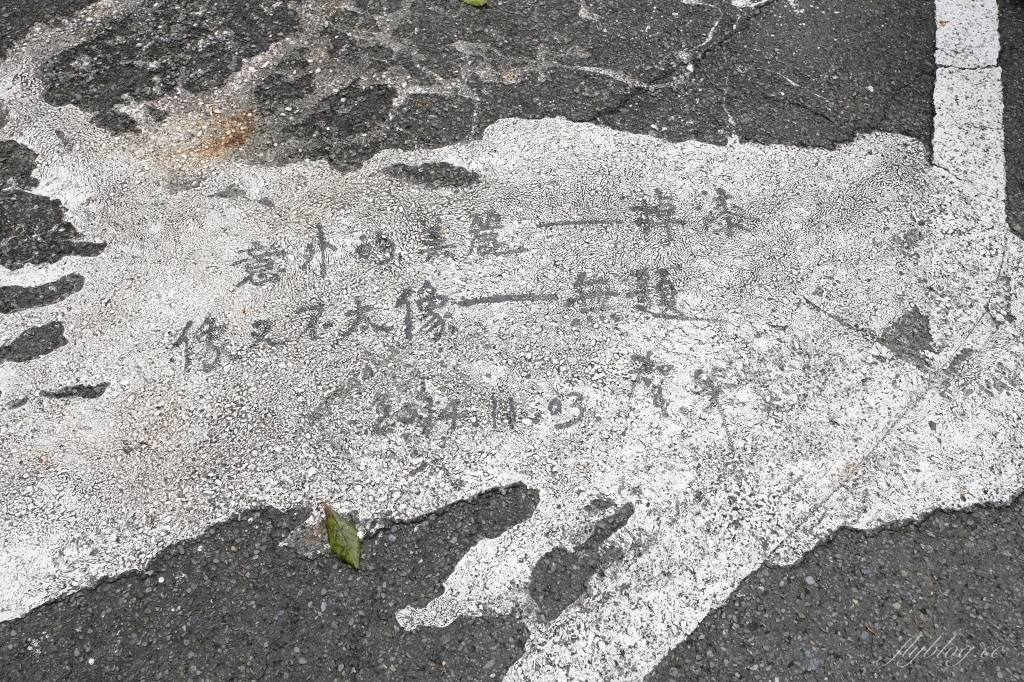 意外的美麗——將漆
像又不太像——無題
2014.11.03
flyblog.cc